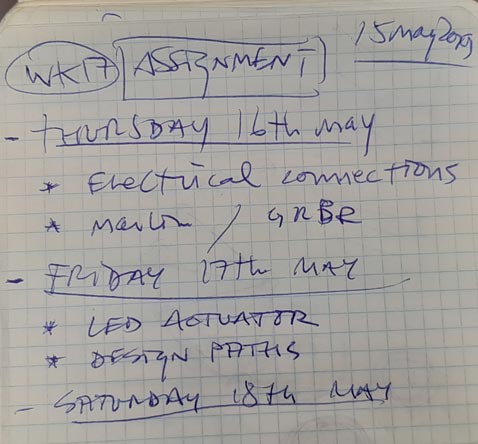 WK17 ASSIGNMENT 15 May 2019
- THURSDAY 16th May
* Electrical connections
* Marlin / GRBR
- FRIDAY 17th MAY
* LED ACTUATOR
* DESIGN PATHS
- SATURDAY 18th MAY